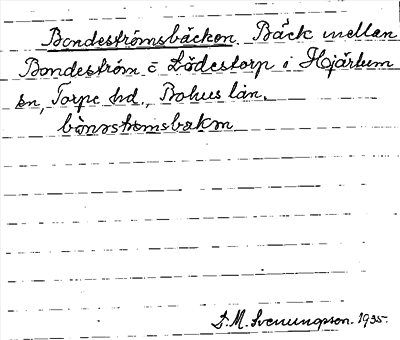 Bondeströmsbäcken. Bäck mellan
Bondeström o Lödestorp i Hjärtum
sn, Torpe hd., Bohus län.
bònstromsbækm
S. M. Svenungsson. 1935.